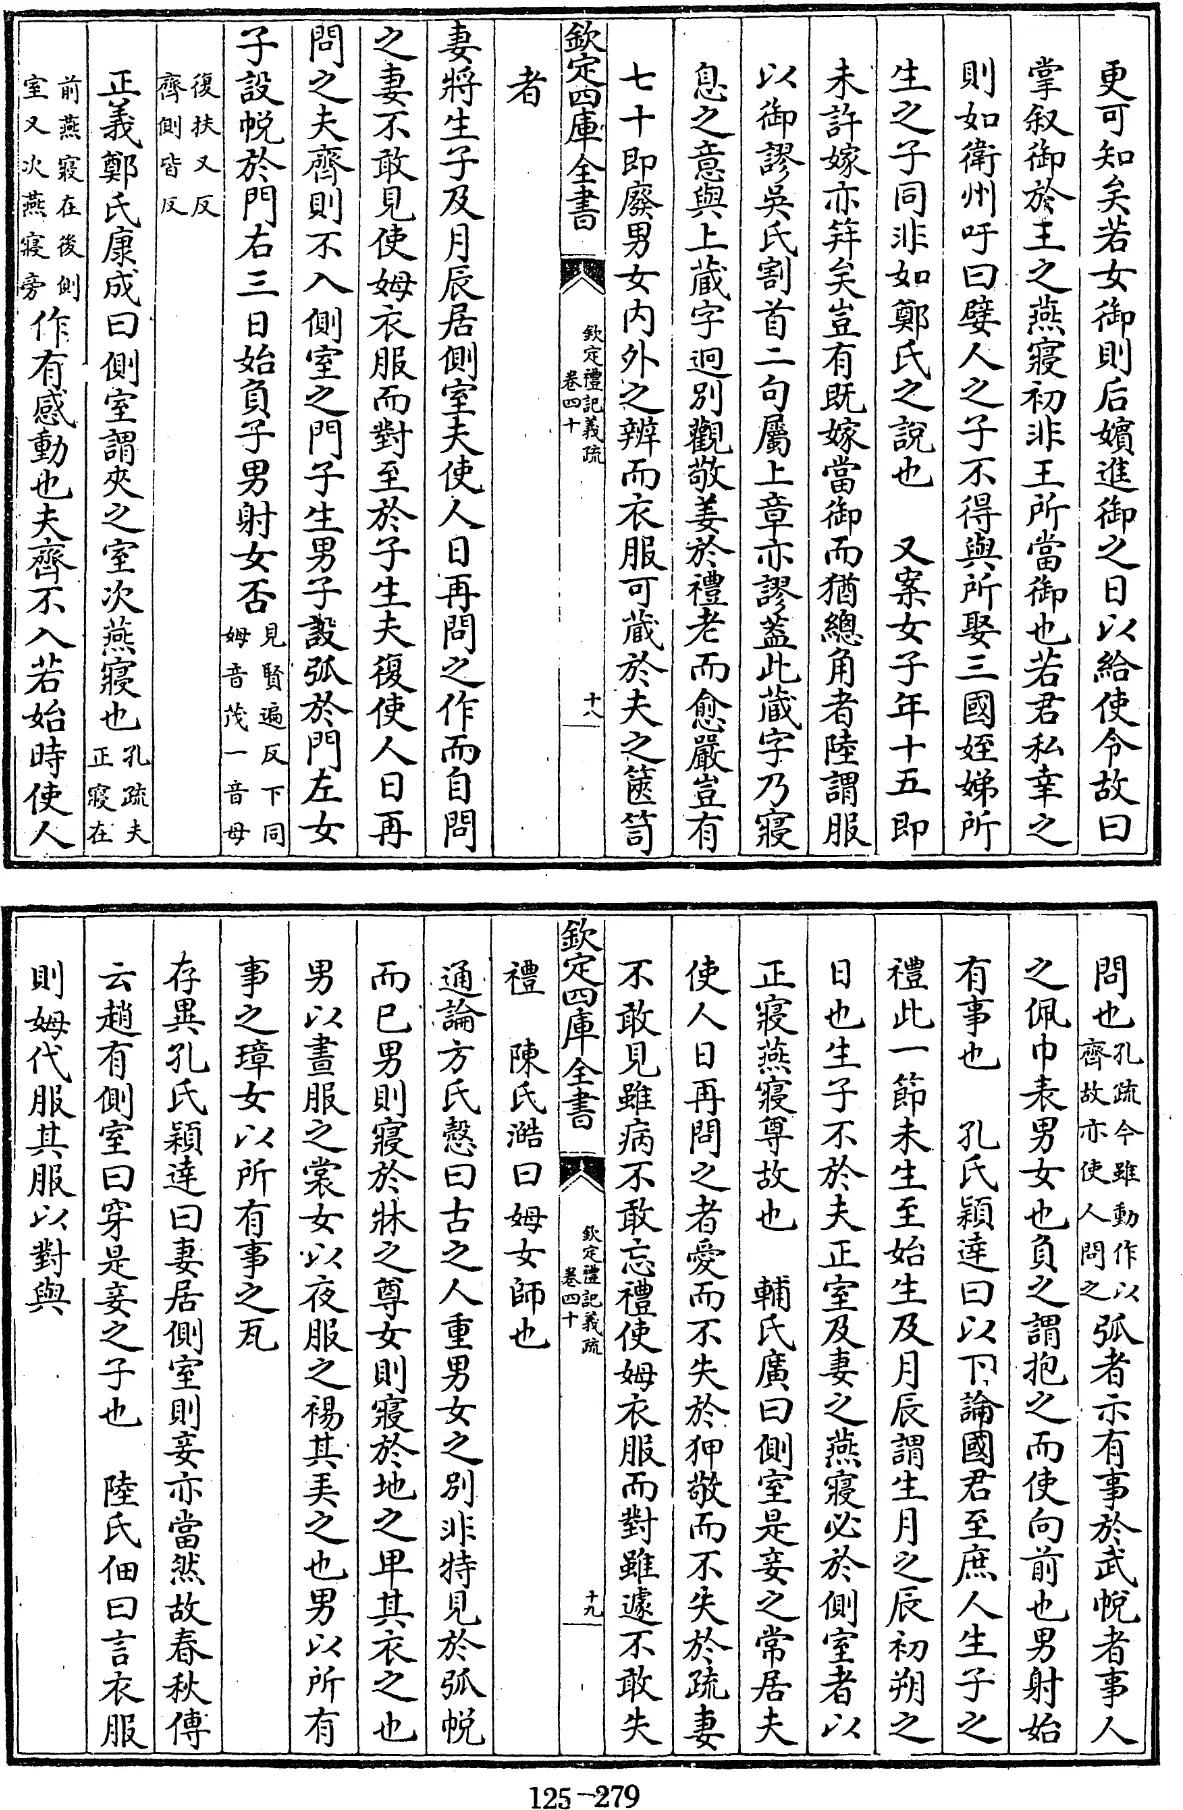 更可知矣若女御則后嬪進御之日以給使令故曰
掌叙御於王之燕寢初非王所當御也若君私幸之
則如衛州吁曰嬖人之子不得與所娶三國姪娣所
生之子同非如鄭氏之說也　又案女子年十五即
未許嫁亦笄矣豈有既嫁當御而猶總角者陸謂服
以御謬吳氏割首二句屬上章亦謬葢此藏字乃寢
息之意與上藏字迥別觀敬姜於禮老而愈嚴豈有
七十即廢男女內外之辨而衣服可藏於夫之篋笥
者
欽定四庫全書
欽定禮記義疏
卷四十
十八
妻將生子及月辰居側室夫使人日再問之作而自問
之妻不敢見使姆衣服而對至於子生夫復使人日再
問之夫齊則不入側室之門子生男子設弧於門左女
子設帨於門右三日始負子男射女否見賢遍反下同
姆音茂一音母
復扶又反
齊側皆反
正義鄭氏康成曰側室謂夾之室次燕寢也孔疏夫
正寢在
前燕寢在後側
室又次燕寢旁作有感動也夫齊不入若始時使人
問也孔疏今雖動作以
齊故亦使人問之弧者示有事於武帨者事人
之佩巾表男女也負之謂抱之而使向前也男射始
有事也　孔氏穎達曰以下論國君至庶人生子之
禮此一節未生至始生及月辰謂生月之辰初朔之
日也生子不於夫正室及妻之燕寢必於側室者以
正寢燕寢尊故也　輔氏廣曰側室是妾之常居夫
使人日再問之者愛而不失於狎敬而不失於疏妻
不敢見雖病不敢忘禮使姆衣服而對雖遽不敢失
欽定四庫全書
欽定禮記義疏
卷四十
十九
禮　陳氏澔曰姆女師也
通論方氏慤曰古之人重男女之別非特見於弧帨
而已男則寢於牀之尊女則寢於地之卑其衣之也
男以晝服之裳女以夜服之裼其弄之也男以所有
事之璋女以所有事之瓦
存異孔氏穎達曰妻居側室則妾亦當然故春秋傳
云趙有側室曰穿是妾之子也　陸氏佃曰言衣服
則姆代服其服以對與
125-279